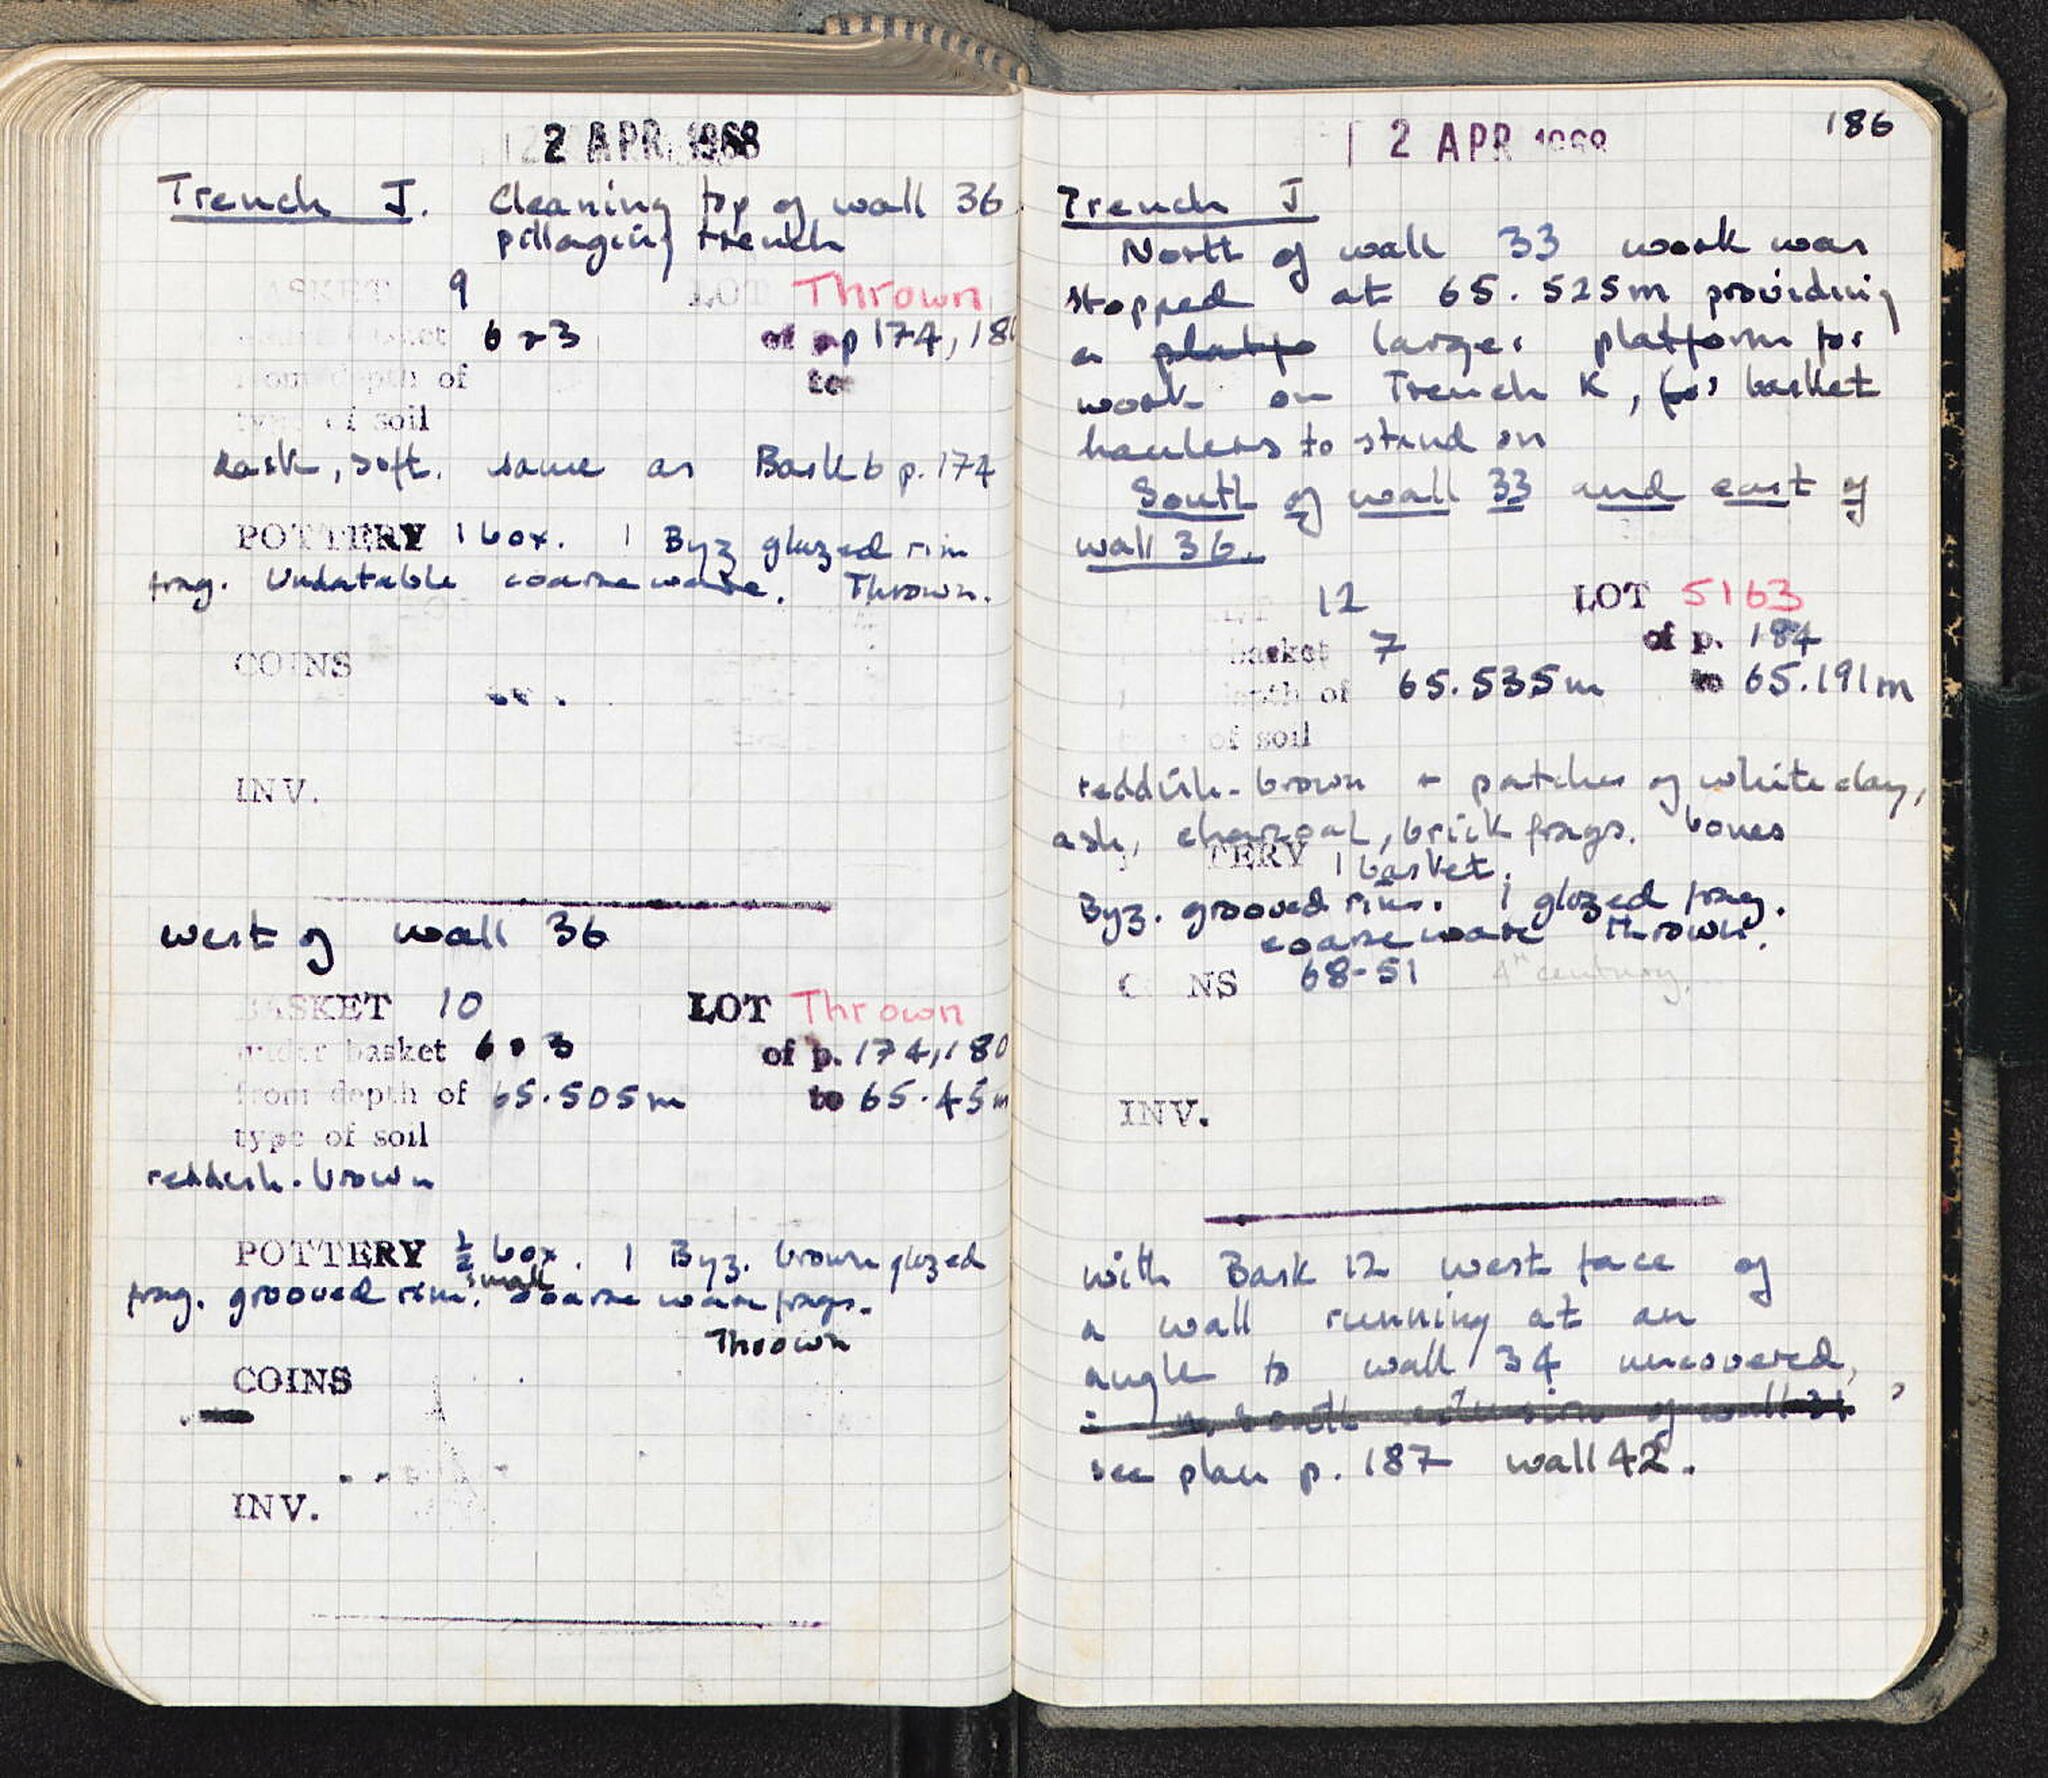 2 APR 1968
Trench J. Cleaning top of wall 36
pillaging trench
BASKET 9 LOT Thrown
basket 6 + 3 of pp 174, 180
from depth of to
type of soil
dark, soft. same as Bask 6 p. 174
POTTERY 1 box. 1 Byz glazed rim
frag. Undatable coarse ware. Thrown.
COINS
INV.
West of wall 36
BASKET 10 LOT Thrown
under basket 6 + 3 of p. 174, 180
from depth of 65.505m to 65.45m
type of soil
reddish-brown
POTTERY ½ box. 1 Byz. brown glazed
frag. grooved rim. small coarse ware frags.
Thrown
COINS
INV.
186
12 APR 1968
Trench J
North of wall 33 work was
stopped at 65.525m providing
a platfo larger platform for
work on Trench K, for basket
haulers to stand on
South of wall 33 and east of
wall 36.
12 LOT 5163
basket 7 of p. 184
depth of 65.535m to 65.191m
type of soil
reddish-brown + patches of white clay,
ash, charcoal, brick frags. bones
POTTERY 1 basket.
Byz. grooved rims. 1 glazed frag.
coarse ware thrown.
COINS 68-51 4th century.
INV.
with Bask 12 west face of
a wall running at an
angle to wall 34 uncovered,
South extension of wall
see plan p. 187 wall 42.